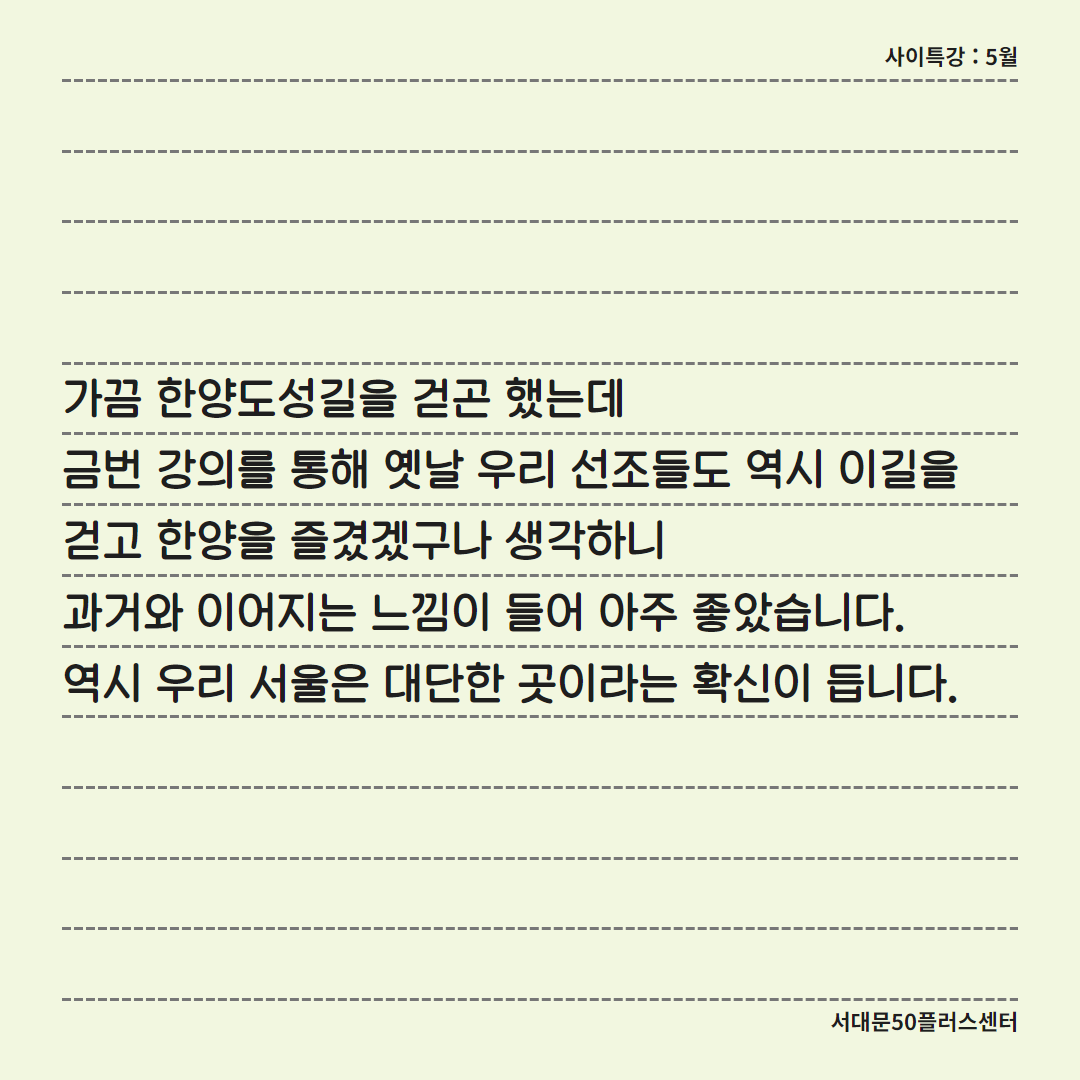 사이특강 : 5월
가끔 한양도성길을 걷곤 했는데
금번 강의를 통해 옛날 우리 선조들도 역시 이길을
걷고 한양을 즐겼겠구나 생각하니
과거와 이어지는 느낌이 들어 아주 좋았습니다.
역시 우리 서울은 대단한 곳이라는 확신이 듭니다.
서대문50플러스센터